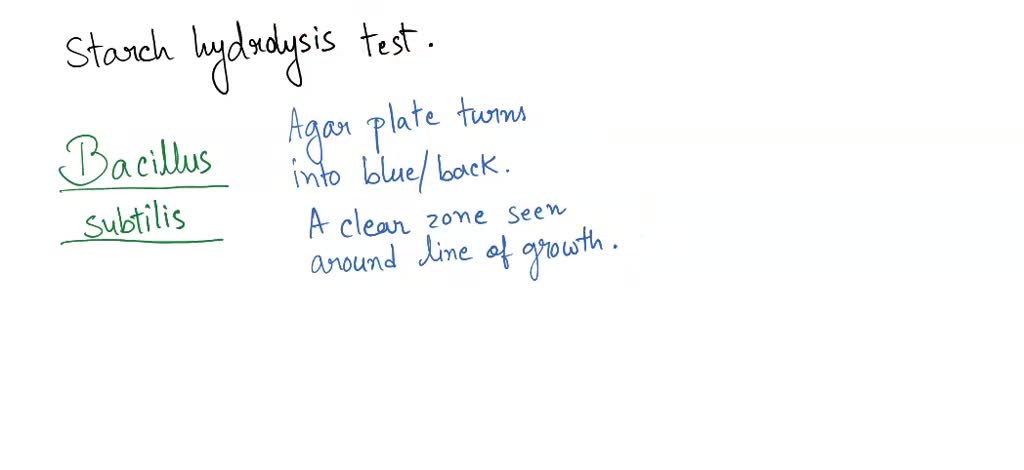 Starch hydrolysis test.
Bacillus
subtilis
Agar plate turns
into blue/back.
A clear zone seen
around line of growth.